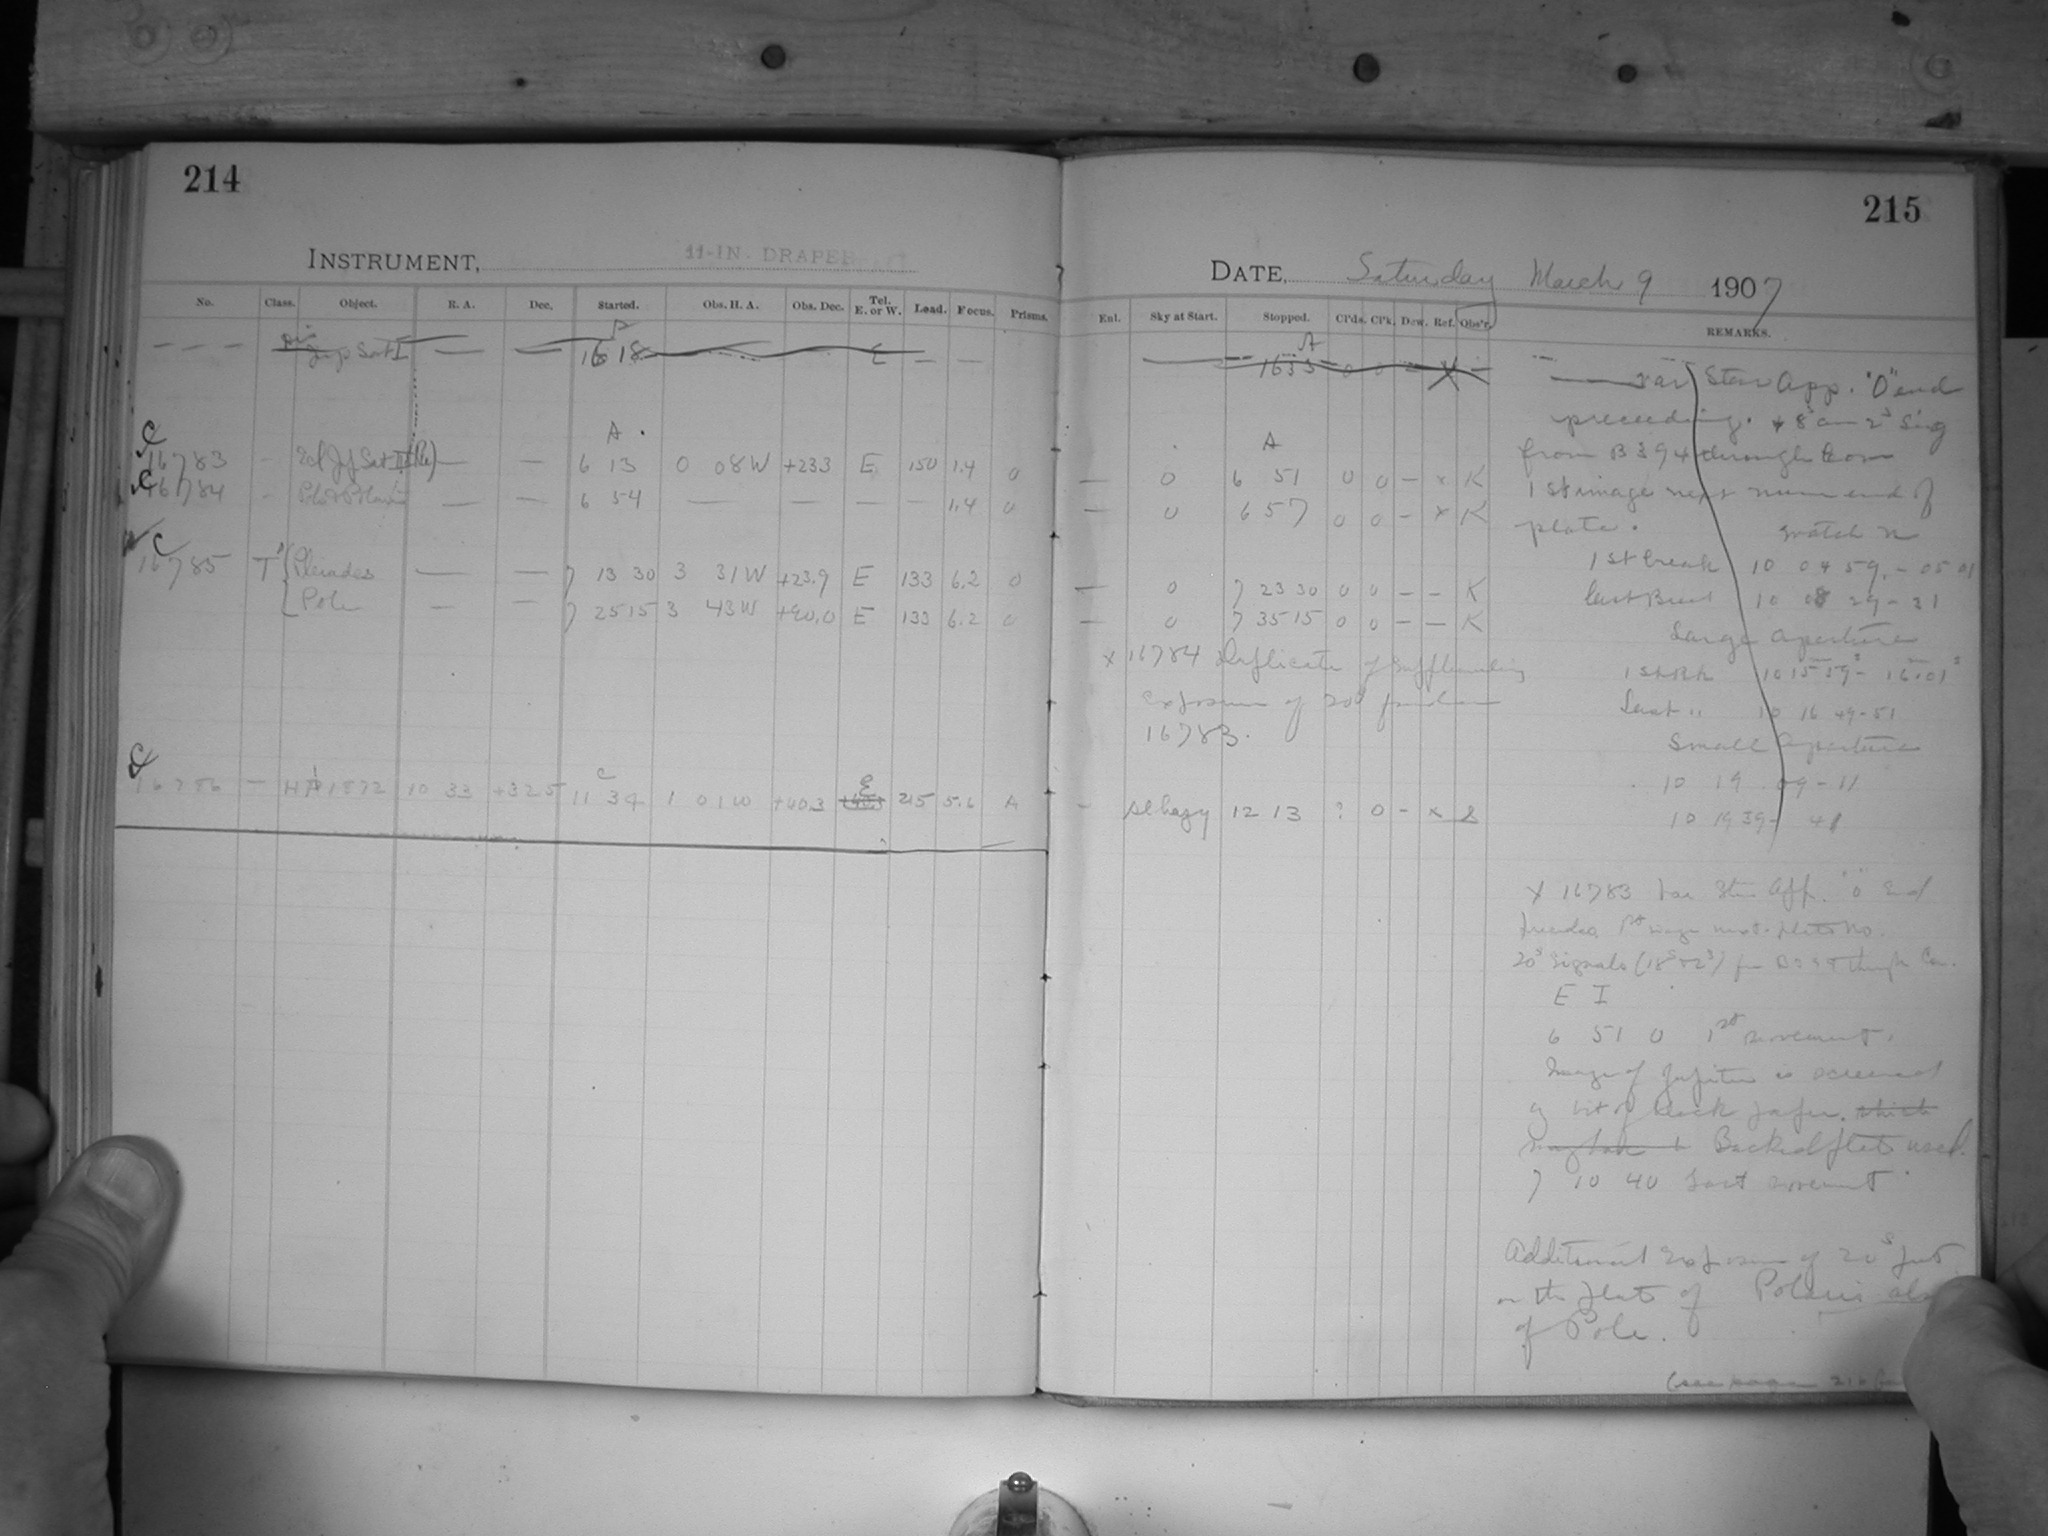 214
INSTRUMENT, 11-IN. DRAPER
No. Class. Object. R. A. Dec. Started. Obs. H. A. Obs. Dec. Tel. E. or W. Load. Focus. Prisms.
— — — Jup Sat I — — 16 18 E — —
A
C
16783 - Ecl Jup Sat — — 6 13 0 08 W +23.3 E 150 1.4 0
C
16784 - — — 6 54 — — — — 1.4 0
C
16785 T Pleiades — — 7 13 30 3 31 W +23.9 E 133 6.2 0
Pole — — 7 25 15 3 43 W +90.0 E 133 6.2 0
C
16786 — HP 1872 10 33 +32.5 11 34 1 01 W +40.3 E 215 5.6 A
215
DATE, Saturday March 9 1907
Enl. Sky at Start. Stopped. Cl'ds. Cl'k. Dew. Ref. Obs'r. REMARKS.
A
— 1633 0 0 - X -
A
— 0 6 51 0 0 - x K
— 0 6 57 0 0 - x K
— 0 7 23 30 0 0 - - K
— 0 7 35 15 0 0 - — K
x 16784 Duplicate of supplementary
exposure of 20s found on
16783.
- sl hazy 12 13 ? 0 - x
Star App. "O" end
preceding. 8s on 2s Sig
from B394 through Com
1st image next num end of
plate.
watch
1st break 10 04 59 - 05 01
Last Break 10 08 29 - 31
Large aperture
10 15 59 - 16 01
Last " 10 16 49 - 51
Small aperture
10 19 09 - 11
10 19 39 - 41
x 16783 Star App. "O" End
precedes 1st image next plate No.
20s signals (18s + 2s) through Com.
E I
6 51 0 1st movement.
Image of Jupiter is screened
by bit of black paper. which
Backed plate used.
7 10 40 Last movement
Additional Exposure of 20s
on the plate of Polaris also
of Pole.
(see page 216